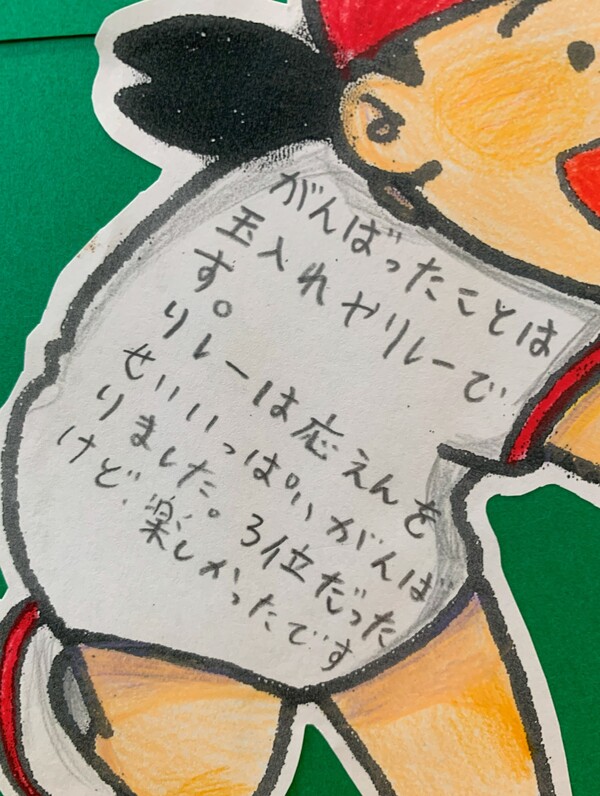 がんばったことは
玉入れやリレーで
す。
リレーは応えんを
せいいっぱいがんば
りました。3位だった
けど、楽しかったです